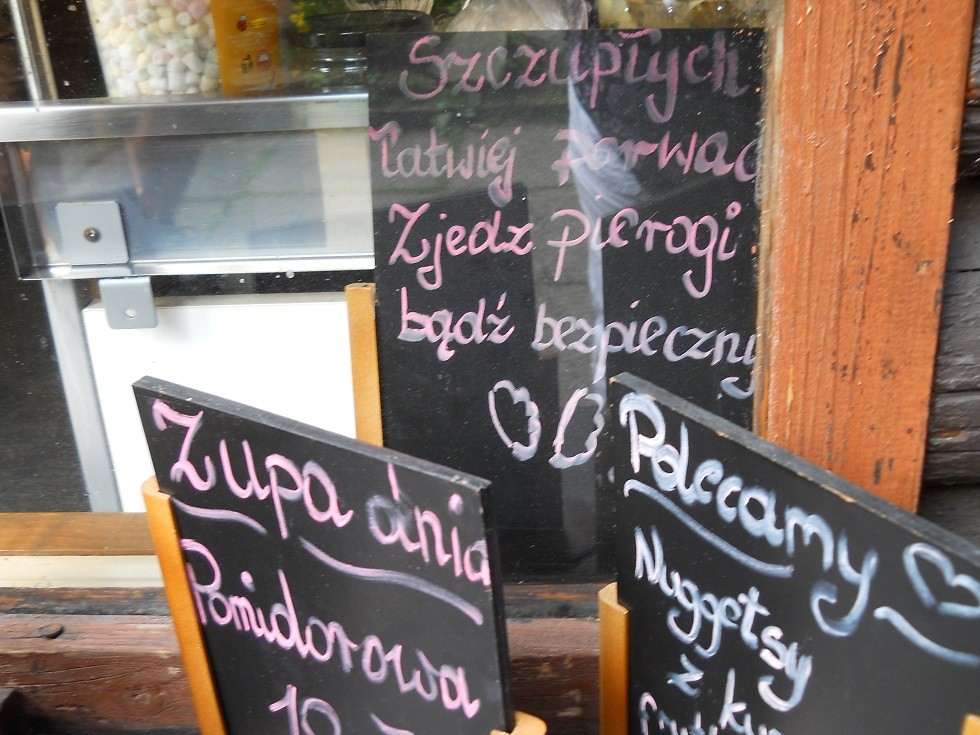 Szczupłych
łatwiej porwać
Zjedz pierogi
bądź bezpieczny
Zupa dnia
Pomidorowa
10
Polecamy
Nuggetsy
z